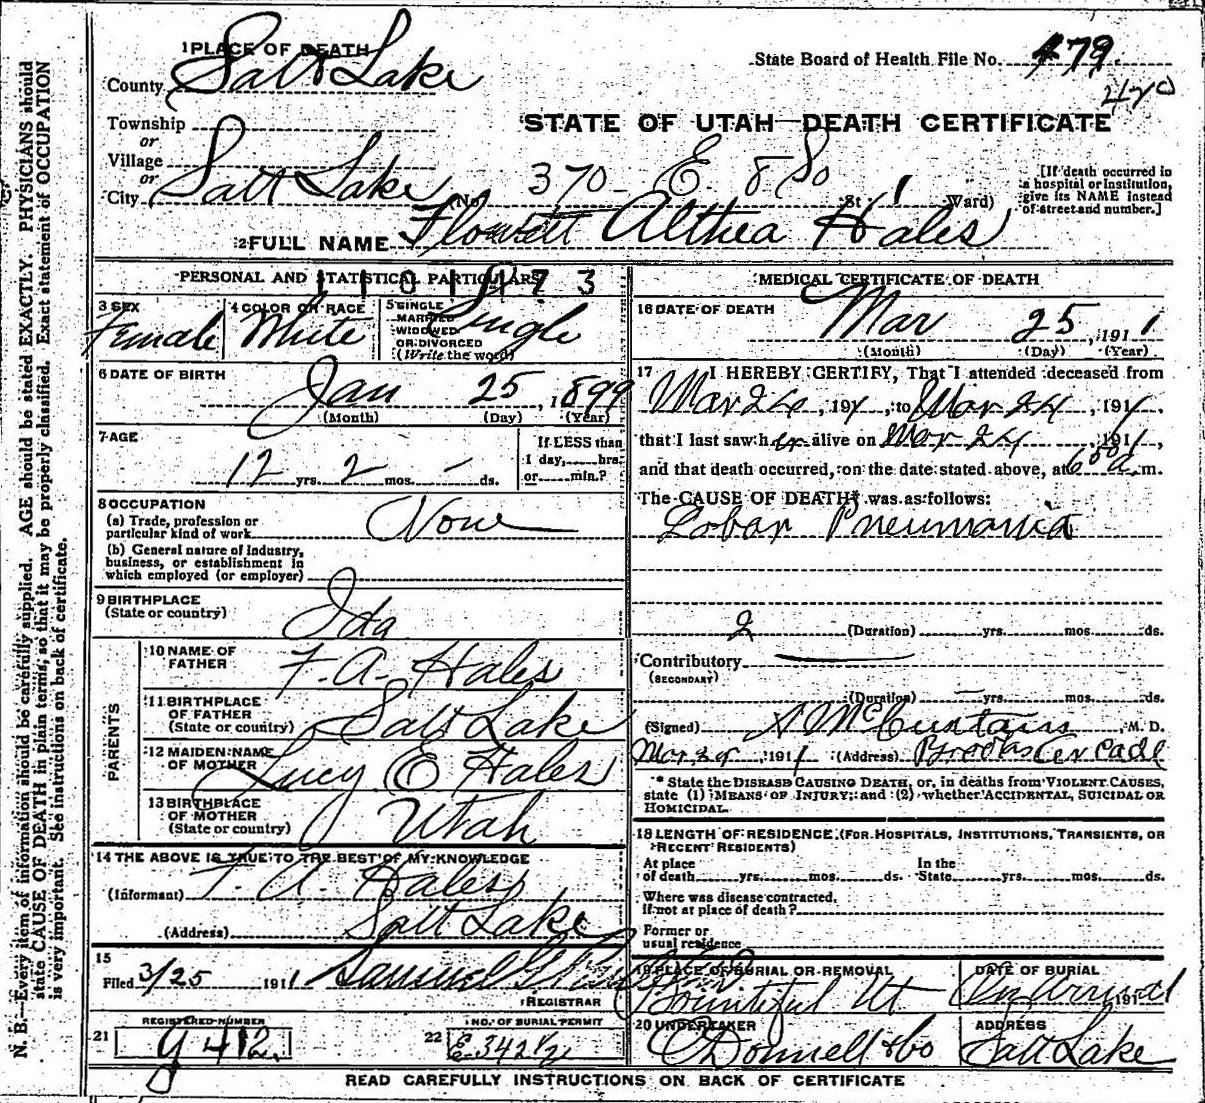 1 PLACE OF DEATH
County Salt Lake
State Board of Health File No. 479
420
Township
or
Village
or
City Salt Lake
STATE OF UTAH—DEATH CERTIFICATE
(No. 370 E 8 So St 1 Ward)
[If death occurred in
a hospital or institution,
give its NAME instead
of street and number.]
2 FULL NAME Althea Hales
PERSONAL AND STATISTICAL PARTICULARS
3 SEX
Female
4 COLOR OR RACE
White
5 SINGLE
MARRIED
WIDOWED
OR DIVORCED
(Write the word)
Single
6 DATE OF BIRTH
Jan 25, 1899
(Month) (Day) (Year)
7 AGE
12 yrs. 2 mos. — ds.
If LESS than
1 day, hrs.
or min.?
8 OCCUPATION
(a) Trade, profession or
particular kind of work
None
(b) General nature of industry,
business, or establishment in
which employed (or employer)
9 BIRTHPLACE
(State or country)
Ida
PARENTS
10 NAME OF
FATHER
F. A. Hales
11 BIRTHPLACE
OF FATHER
(State or country)
Salt Lake
12 MAIDEN NAME
OF MOTHER
Lucy E Hales
13 BIRTHPLACE
OF MOTHER
(State or country)
Utah
14 THE ABOVE IS TRUE TO THE BEST OF MY KNOWLEDGE
(Informant) F. A. Hales
(Address) Salt Lake
15
Filed 3/25 1911 Samuel G.
REGISTRAR
21 REGISTERED NUMBER
g 412.
22 NO. OF BURIAL PERMIT
MEDICAL CERTIFICATE OF DEATH
16 DATE OF DEATH
Mar 25, 1911
(Month) (Day) (Year)
17 I HEREBY CERTIFY, That I attended deceased from
Mar 24, 191, to Mar 24, 1911,
that I last saw her alive on Mar 24, 1911,
and that death occurred, on the date stated above, at 6 50 a.m.
The CAUSE OF DEATH* was as follows:
Lobar Pneumonia
2 (Duration) yrs. mos. ds.
Contributory —
(SECONDARY)
(Duration) — yrs. mos. ds.
(Signed) M. D.
Mar 25, 1911 (Address)
* State the DISEASE CAUSING DEATH, or, in deaths from VIOLENT CAUSES,
state (1) MEANS OF INJURY; and (2) whether ACCIDENTAL, SUICIDAL OR
HOMICIDAL.
18 LENGTH OF RESIDENCE (FOR HOSPITALS, INSTITUTIONS, TRANSIENTS, OR
RECENT RESIDENTS)
At place
of death yrs. mos. ds.
In the
State yrs. mos. ds.
Where was disease contracted,
If not at place of death?
Former or
usual residence
19 PLACE OF BURIAL OR REMOVAL
Bountiful Ut
DATE OF BURIAL
On arrival 191
20 UNDERTAKER
O'Donnell & Co
ADDRESS
Salt Lake
READ CAREFULLY INSTRUCTIONS ON BACK OF CERTIFICATE
N. B.—Every item of information should be carefully supplied. AGE should be stated EXACTLY. PHYSICIANS should
state CAUSE OF DEATH in plain terms, so that it may be properly classified. Exact statement of OCCUPATION
is very important. See instructions on back of certificate.